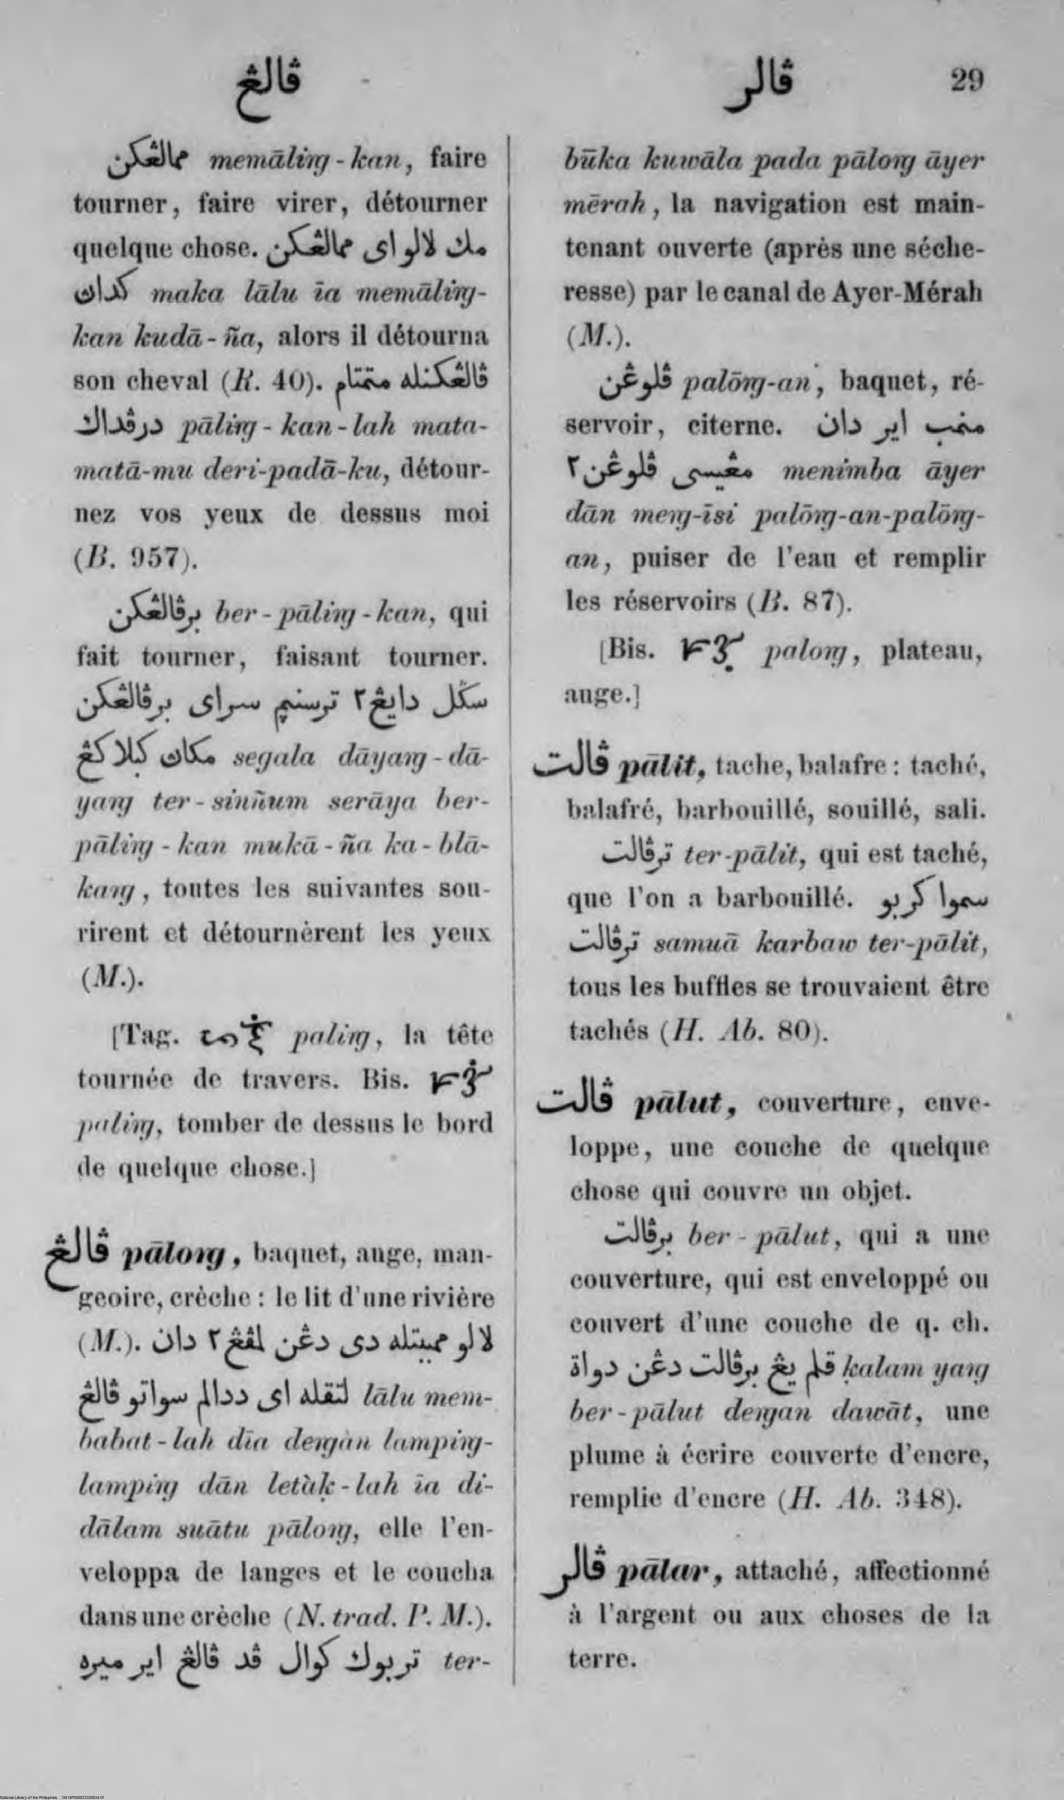 ڤالڠ
ڤالر 29
ممالڠكن memāling-kan, faire
tourner, faire virer, détourner
quelque chose. مك لالو اى ممالڠكن
كدان maka lālu īa memāling-
kan kudā-ña, alors il détourna
son cheval (R. 40). ڤالڠكنله متمتام
درڤداك pāling-kan-lah mata-
matā-mu deri-padā-ku, détour-
nez vos yeux de dessus moi
(B. 957).
برڤالڠكن ber-pāling-kan, qui
fait tourner, faisant tourner.
سڬل دايڠ٢ ترسنيم سراى برڤالڠكن
مكان كبلاكڠ segala dāyang-dā-
yang ter-sinñum serāya ber-
pāling-kan mukā-ña ka-blā-
kang, toutes les suivantes sou-
rirent et détournèrent les yeux
(M.).
[Tag. paling, la tête
tournée de travers. Bis.
paling, tomber de dessus le bord
de quelque chose.]
ڤالڠ pālong, baquet, auge, man-
geoire, crèche: le lit d'une rivière
(M.). لالو ممببتله دى دڠن لمڤڠ٢ دان
لتقله اى ددالم سواتو ڤالڠ lālu mem-
babat-lah dīa dengan lamping-
lamping dān letàḳ-lah īa di-
dālam suātu pālong, elle l'en-
veloppa de langes et le coucha
dans une crèche (N. trad. P. M.).
تربوك كوال ڤد ڤالڠ اير ميره ter-
būka kuwāla pada pālong āyer
mērah, la navigation est main-
tenant ouverte (après une séche-
resse) par le canal de Ayer-Mérah
(M.).
ڤلوڠن palōng-an, baquet, ré-
servoir, citerne. منمب اير دان
مڠيسى ڤلوڠن٢ menimba āyer
dān meng-īsi palōng-an-palōng-
an, puiser de l'eau et remplir
les réservoirs (B. 87).
[Bis. palong, plateau,
auge.]
ڤالت pālit, tache, balafre: taché,
balafré, barbouillé, souillé, sali.
ترڤالت ter-pālit, qui est taché,
que l'on a barbouillé. سموا كربو
ترڤالت samuā karbaw ter-pālit,
tous les buffles se trouvaient être
tachés (H. Ab. 80).
ڤالت pālut, couverture, enve-
loppe, une couche de quelque
chose qui couvre un objet.
برڤالت ber-pālut, qui a une
couverture, qui est enveloppé ou
couvert d'une couche de q. ch.
قلم يڠ برڤالت دڠن دواة ḳalam yang
ber-pālut dengan dawāt, une
plume à écrire couverte d'encre,
remplie d'encre (H. Ab. 348).
ڤالر pālar, attaché, affectionné
à l'argent ou aux choses de la
terre.